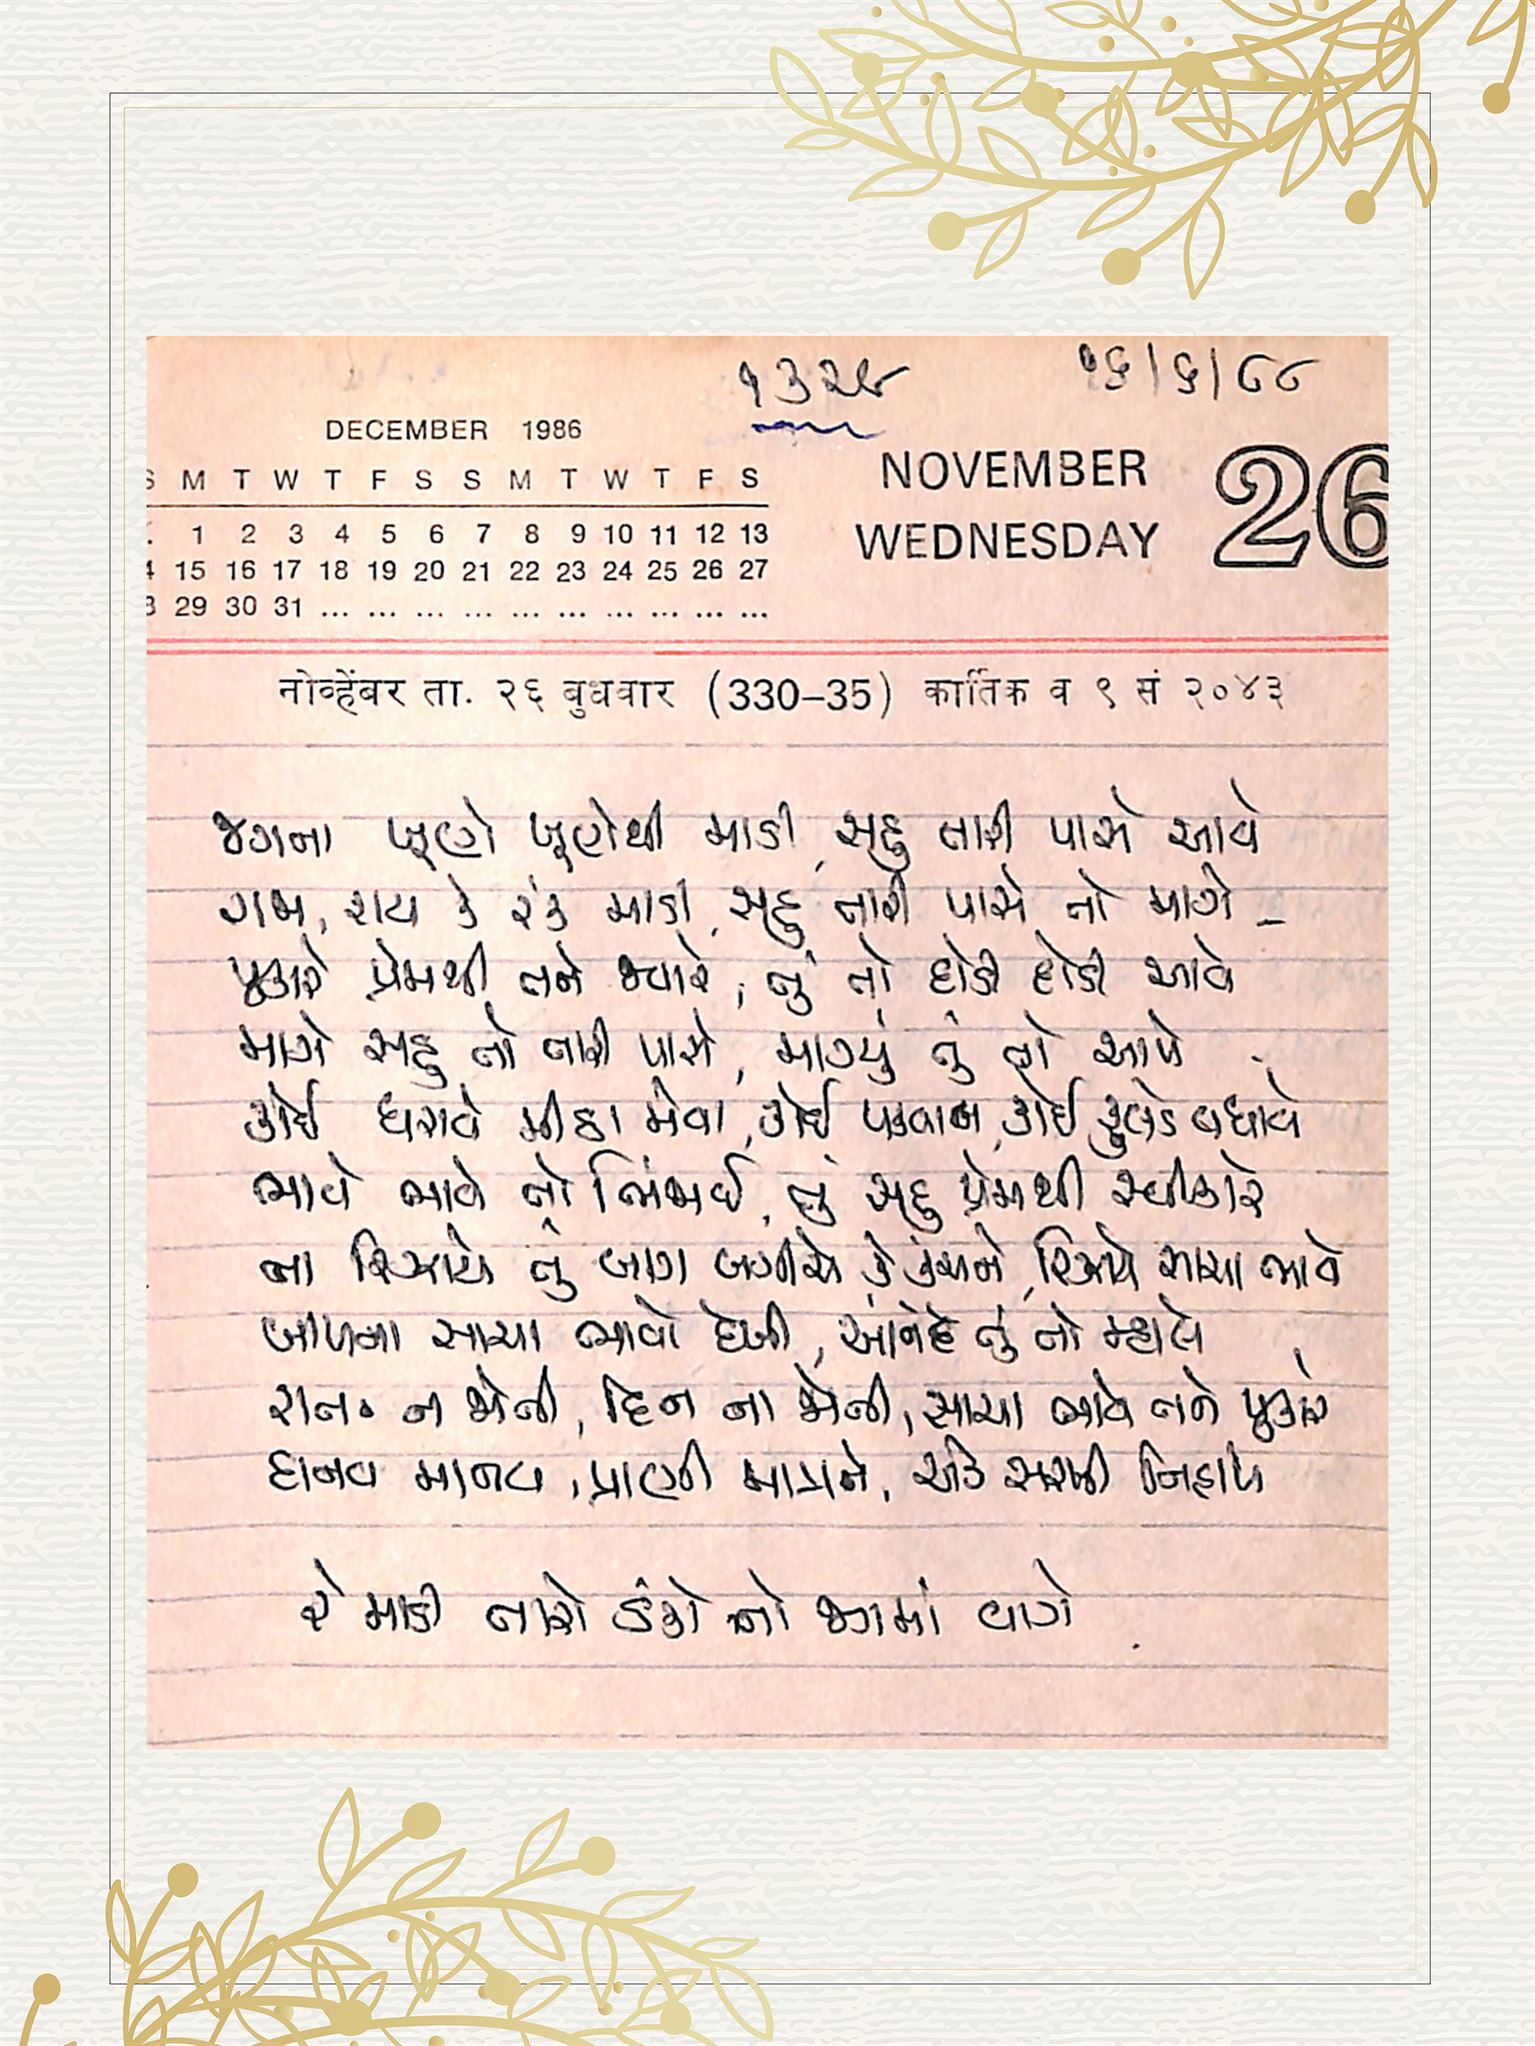 ૧૩૨૯
૧૬/૬/૮૮
DECEMBER 1986
S M T W T F S S M T W T F S
1 2 3 4 5 6 7 8 9 10 11 12 13
15 16 17 18 19 20 21 22 23 24 25 26 27
29 30 31 ... ... ... ... ... ... ... ... ... ...
NOVEMBER
WEDNESDAY
26
नोव्हेंबर ता. २६ बुधवार (330–35) कार्तिक व ९ सं २०४३
જગના ખૂણે ખૂણેથી માડી, સહુ તારી પાસે આવે
રાજા, રાય કે રંક માડી, સહુ તારી પાસે તો માગે –
પુકારે પ્રેમથી તને જ્યારે, તું તો દોડી દોડી આવે
માગે સહુ તો તારી પાસે, માગ્યું તું તો આપે
કોઈ ધરાવે મીઠા મેવા, કોઈ પકવાન, કોઈ ફુલડે વધાવે
ભાવે ભાવે તો ભિંજાઈ, તું સહુ પ્રેમથી સ્વીકારે
ના રિઝાયે તું બાગ બગીચે કે કંચને, રિઝાયે સાચા ભાવે
બાળના સાચા ભાવો દેખી, આનંદે તું તો મ્હાલે
રાત ન જોતી, દિન ના જોતી, સાચા ભાવે તને પુકારે
દાનવ માનવ, પ્રાણી માત્રને, એક સરખી નિહાળે
રે માડી તારો ડંકો તો જગમાં વાગે